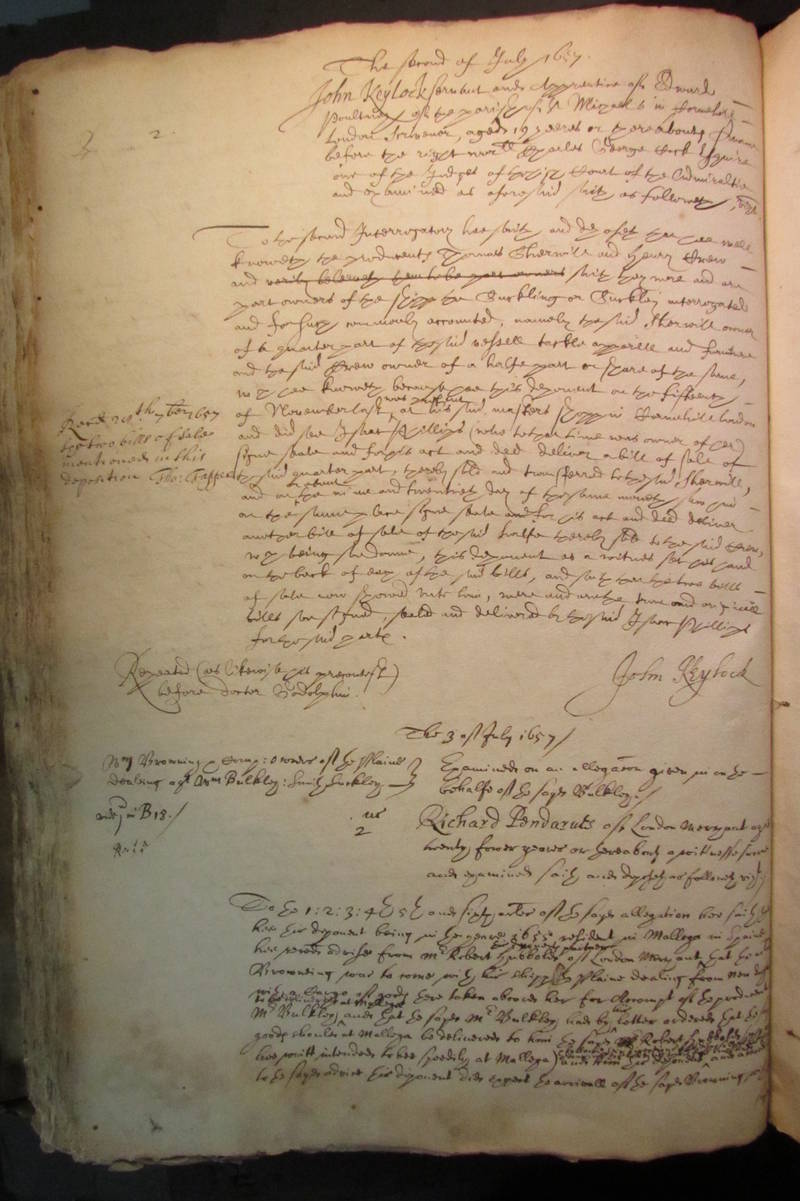 The second of July 1657.
2.
John Keylock servant and Apprentice of Edward
of the parish of St Michael in Cornehill
London Scrivenor, aged 19 yeeres or thereabouts sworne
before the right worll Charles George Cock Esquire
one of the Judges of the high Court of the Admiraltie
and examined as aforesaid saith as followeth, vizt.
To the second Interrogatory hee saith and deposeth that hee well
knoweth the producents Thomas Sherwill and Henry Drew
and verily beleeveth them to be part owners saith they were and are
part owners of the shipp the Suckling or Suckley interrogated
and for such commonly accounted, namely the said Sherwill owner
of a quarter part of the said vessell tackle apparell and furniture
and the said Drew owner of a halfe part or share of the same,
wch hee knoweth because hee this deponent on the fifteenth
of November last was present at his said masters shopp in Cornehill London
and did see Isaac Phillips (who to that time was owner of her)
signe seale and as his act and deed deliver a bill of sale of
the said quarter part, thereby sold and transferred to the said Sherwill,
and on the nine and twentieth day of the same moneth hee saw him
in the same place signe seale and for his act and deed deliver
another bill of sale of the said halfe thereby sold to the said Drew,
wch being soe donne, this deponent as a witnes set his hand
on the back of each of the said bills, and saith that the two bills
of sale now showed unto him, were and are the true and originall
bills soe signed, sealed and delivered by the said Isaac Phillips
for the said parts.
Recd 20th 1657
the two bills of sale
mentioned in this
deposition Tho:
Repeated (as likewise his precontest)
before doctor Godolphin.
John Keylock
The 3 of July 1657/
Browning Comp: owners of the Plaine
dealing agt Wm Bulkley: Smith Suckley
Examined on an allegacon given in on the
behalfe of the sayd Bulkley./
in B 18./
2
Richard Pendarves of London Merchant aged
twenty fower yeares or thereabouts a witnesse sworne
and examined saith and deposeth as followeth vizt
To the 1: 2: 3: 4th 5th and sixth articles of the sayd allegation hee saith
hee this deponent being in the yeare 1655 resident in Mallega in Spaine
hee received advise from Mr Robert of London Merchant that the
Browning was to come with his shipp the Plaine dealing from
with a Cargo of goods there taken aboard her for Accompt of the producent
Mr Bulkley, and that the sayd Mr Bulkley had by letter ordered that the
goods should at Mallega be delivered to him the sayd Mr Robert
intended to bee speedily at Mallega
to the sayd advise this deponent did expect the arrivall of the sayd Browning